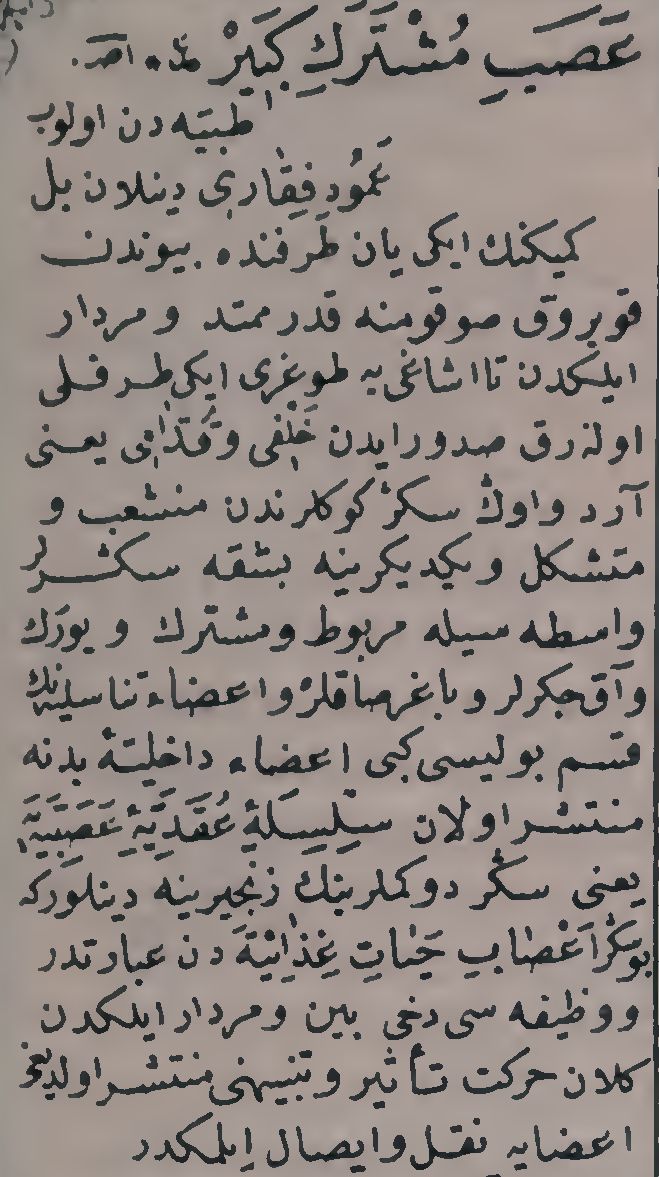 عَصَبِ مُشْتَرَكِ كَبِيرْ
طبیّه دن اولوب
عَمُودِ فِقَارِی دینلان بل
كمیكنك ایكی یان طرفنده بیوندن
قویروق صوقومنه قدر ممتد و مردار
ایلیكدن تا اشاغی یه طوغری ایكی طرفلی
اوله رق صدور ایدن خَلْفی و قُدّامی یعنی
آرد و اوڭ سكڭر كوكلرندن منشعب و
متشكل و یكدیكرینه بشقه سكڭرلر
واسطه سیله مربوط و مشترك و یورَك
و آق جكرلر و باغرصاقلر و اعضاء تناسلیه نك
قسم بولیسی كبی اعضاء داخلیّۀ بدنه
منتشر اولان سِلْسِلَۀِ عُقَدِیَّۀِ عَصَبِیَّه
یعنی سكڭر دوكملرینك زنجیرینه دینلوركه
بو سكڭر اَعْصَابِ حَیَاتِ غِذَائِیَّه دن عبارتدر
و وظیفه سی دخی بین و مردار ایلیكدن
كلان حركت تأثیر و تنبیهنی منتشر اولدیغی
اعضایه نقل و ایصال ایلمكدر